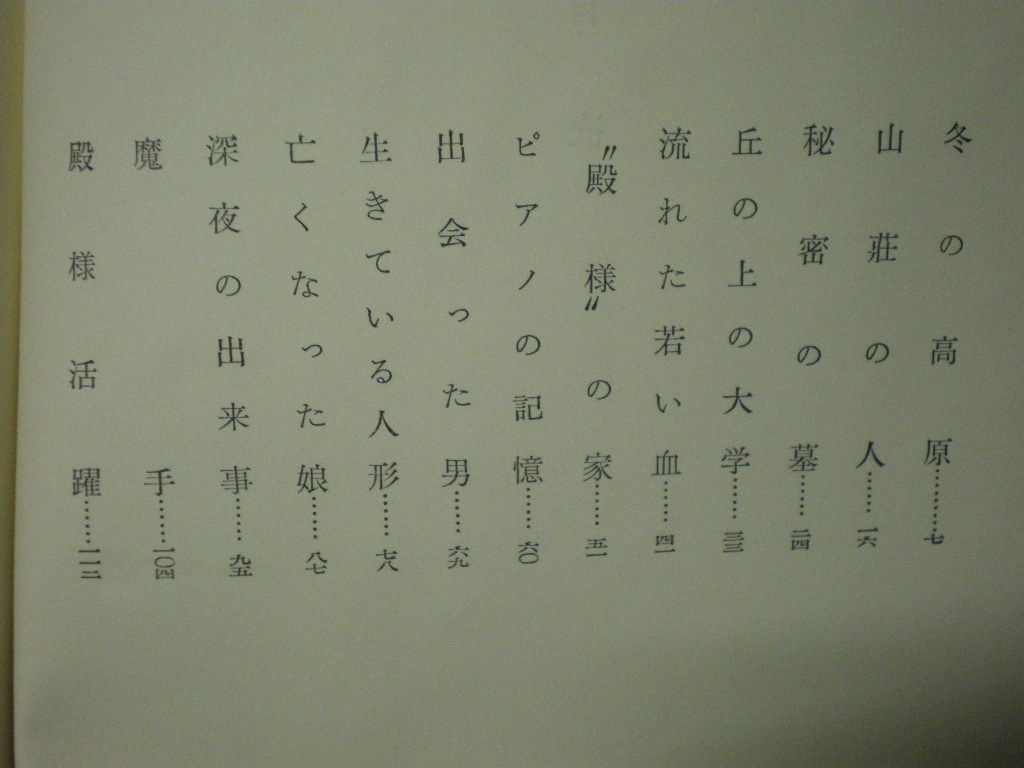 冬の高原………七
山荘の人……一六
秘密の墓……二四
丘の上の大学……三三
流れた若い血……四一
〝殿様〟の家……五一
ピアノの記憶……六〇
出会った男……六九
生きている人形……七八
亡くなった娘……八七
深夜の出来事……九五
魔手……一〇四
殿様活躍……一一二